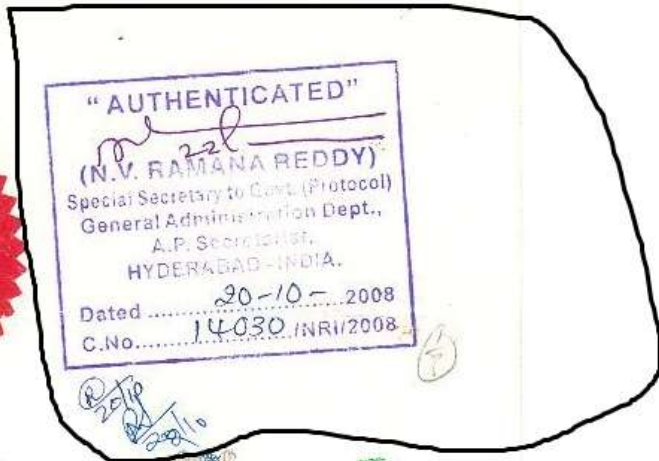 "AUTHENTICATED"
(N.V. RAMANA REDDY)
Special Secretary to Govt. (Protocol)
General Administration Dept.,
A.P. Secretariat,
HYDERABAD - INDIA.
Dated ........ 20-10- ...2008
C.No........ 14030 /NRI/2008
20/10